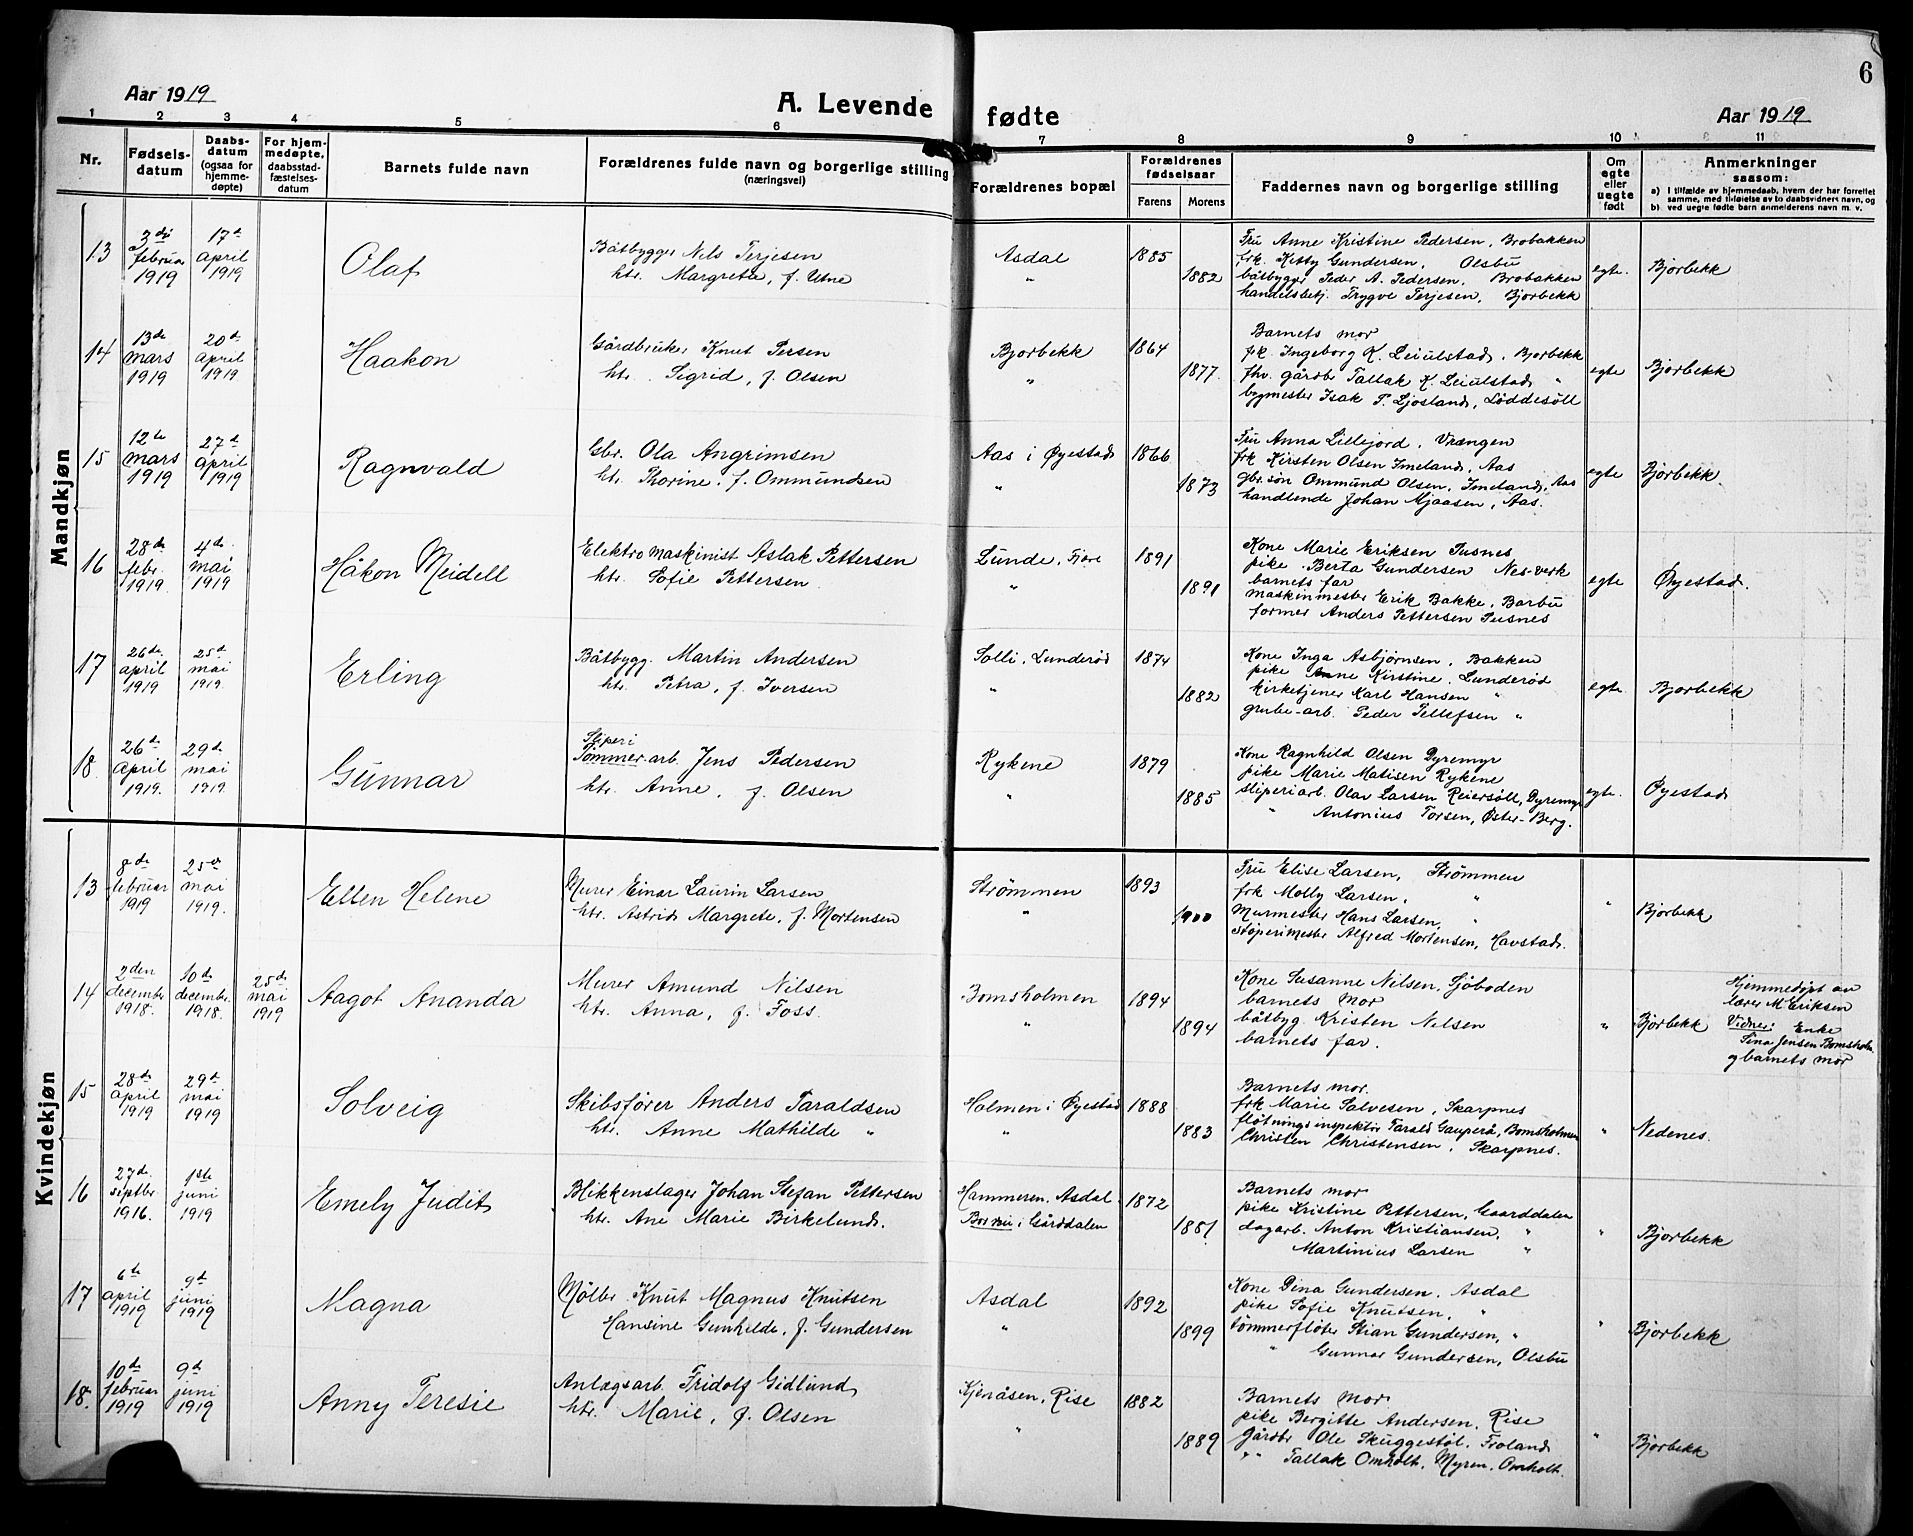 6
Aar 1919
A. Levende fødte
Aar 1919
1 2 3 4 5 6 7 8 9 10 11
Nr.
Fødsels-
datum
Daabs-
datum
(ogsaa for
hjemme-
døpte)
For hjem-
medøpte,
daabsstad-
fæstelses-
datum
Barnets fulde navn
Forældrenes fulde navn og borgerlige stilling
(næringsvei)
Forældrenes bopæl
Forældrenes
fødselsaar
Farens Morens
Faddernes navn og borgerlige stilling
Om
egte
eller
uegte
født
Anmerkninger
saasom:
a) I tilfælde av hjemmedaab, hvem der har forrettet
samme, med tilføielse av to daabsvidners navn, og
b) ved uegte fødte barn anmelderens navn m. v.
Mandkjøn
13
3di
februar
1919
17d
april
1919
Olaf
Båtbygger Nils Terjesen
htr. Margrete, f. Utne
Asdal
"
1885
1882
Fru Anne Kristine Pedersen, Brobakken
frk. Kitty Gundersen, Olsbu
båtbygger Peder A. Pedersen, Brobakken
handelsbetj. Trygve Terjesen, Bjorbekk
egte.
Bjorbekk
14
13de
mars
1919
20d
april
1919
Haakon
Gårdbruker Knut Persen
htr. Sigrid, f. Olsen
Bjorbekk
"
1864
1877.
Barnets mor
frk. Ingeborg K. Leiulstad, Bjorbekk
fhv. gårdbr Tallak K. Leiulstad "
bygmester Isak T. Ljosland, Løddesøll
egte
Bjorbekk
15
12te
mars
1919
27d
april
1919
Ragnvald
Gbr. Ola Angrimsen
htr. Thorine, f. Ommundsen
Aas i Øyestad
"
1866
1873
Fru Anna Lillejord, Vrængen
frk Kirsten Olsen Imeland, Aas
gbr.søn Ommund Olsen, Imeland, Aas
handlende Johan Mjaasen, Aas.
egte
Bjorbekk
16
28de
febr.
1919.
4de
mai
1919
Håkon Meidell
Elektromaskinist Aslak Pettersen
htr. Sofie Pettersen
Lunde, Fiære
"
1891
1891
Kone Marie Eriksen Pusnes
pike Berta Gundersen Nes-verk
barnets far
maskinmester Erik Bakke, Barbu
former Anders Pettersen Pusnes
egte
Øyestad.
17
26de
april
1919
25d
mai
1919.
Erling
Båtbygg. Martin Andersen
htr. Petra, f. Iversen
Solli, Lunderød
"
1874
1882
Kone Inga Asbjørnsen, Bakken
pike Anne Kirstine, Lunderød
kirketjener Karl Hansen "
grube-arb. Peder Pellefsen "
egte.
Bjorbekk
18
26de
april
1919.
29d
mai
1919.
Gunnar
Sliperi
Tømmer-arb. Jens Pedersen
htr. Anne, f. Olsen
Rykene
"
1879
1885
Kone Ragnhild Olsen Dyremyr
pike Marie Matisen Rykene
sliperiarb. Olav Larsen Reiersøll, Dyremyr
" Antonius Torsen, Øster-Berg.
egte.
Øyestad
Kvindekjøn
13
8de
februar
1919
25de
mai
1919.
Ellen Helene
Murer Einar Laurin Larsen
htr. Astrid Margrete, f. Mortensen
Strømmen
"
1893
1900
Fru Elise Larsen, Strømmen
frk Molly Larsen, "
Murmester Hans Larsen, "
Støperimester Alfred Mortensen, Havstad.
"
Bjorbekk
14
2den
december
1918.
10d
december
1918.
25de
mai
1919
Aagot Ananda
Murer Amund Nilsen
htr. Anna, f. Foss.
Bomsholmen
"
1894
1894
Kone Susanne Nilsen, Sjøboden
barnets mor
båtbyg. Kristen Nilsen
barnets far.
"
Bjorbekk
Hjemmedøpt av
lærer M Eriksen
Vidner: Enke
Sina Jensen Bomsholm
og barnets mor
15
28de
april
1919
29d
mai
1919
Solveig
Skibsfører Anders Taraldsen
htr. Anne Mathilde "
Holmen i Øyestad
"
1888
1883
Barnets mor.
frk Marie Salvesen, Skarpnes
fløtningsinspektør Tarald Gauperå, Bomsholmen
Christen Christensen, Skarpnes.
"
Nedenes.
16
27de.
septbr
1916.
1ste
juni
1919
Emely Judit
Blikkenslager Johan Stefan Pettersen
htr. Ane Marie Birkelund.
Hammeren, Asdal.
Bor nu i Gårddalen
1872
1881
Barnets mor
pike Kristine Pettersen, Gaarddalen
dagarb. Anton Kristiansen, "
Martinius Larsen "
"
Bjorbekk
17
6te
april
1919
9d
juni
1919
Magna
Mølber Knut Magnus Knutsen
Hansine Gunhilde, f. Gundersen
Asdal
"
1892
1899
Kone Dina Gundersen, Asdal
pike Sofie Knutsen, "
tømmerfløter Stian Gundersen, "
" Gunnar Gundersen, Olsbu
"
Bjorbekk
18.
10de
februar
1919
9d
juni
1919
Anny Teresie
Anlægsarb. Fridolf Gidlund
htr. Marie, f. Olsen
Kjenåsen, Rise
"
1882
1889
Barnets mor
pike Bergitte Andersen, Rise
Gårdbr Ole Skuggestøl, Froland
" Tallak Omholt, Myren, Omholt.
"
Bjorbekk